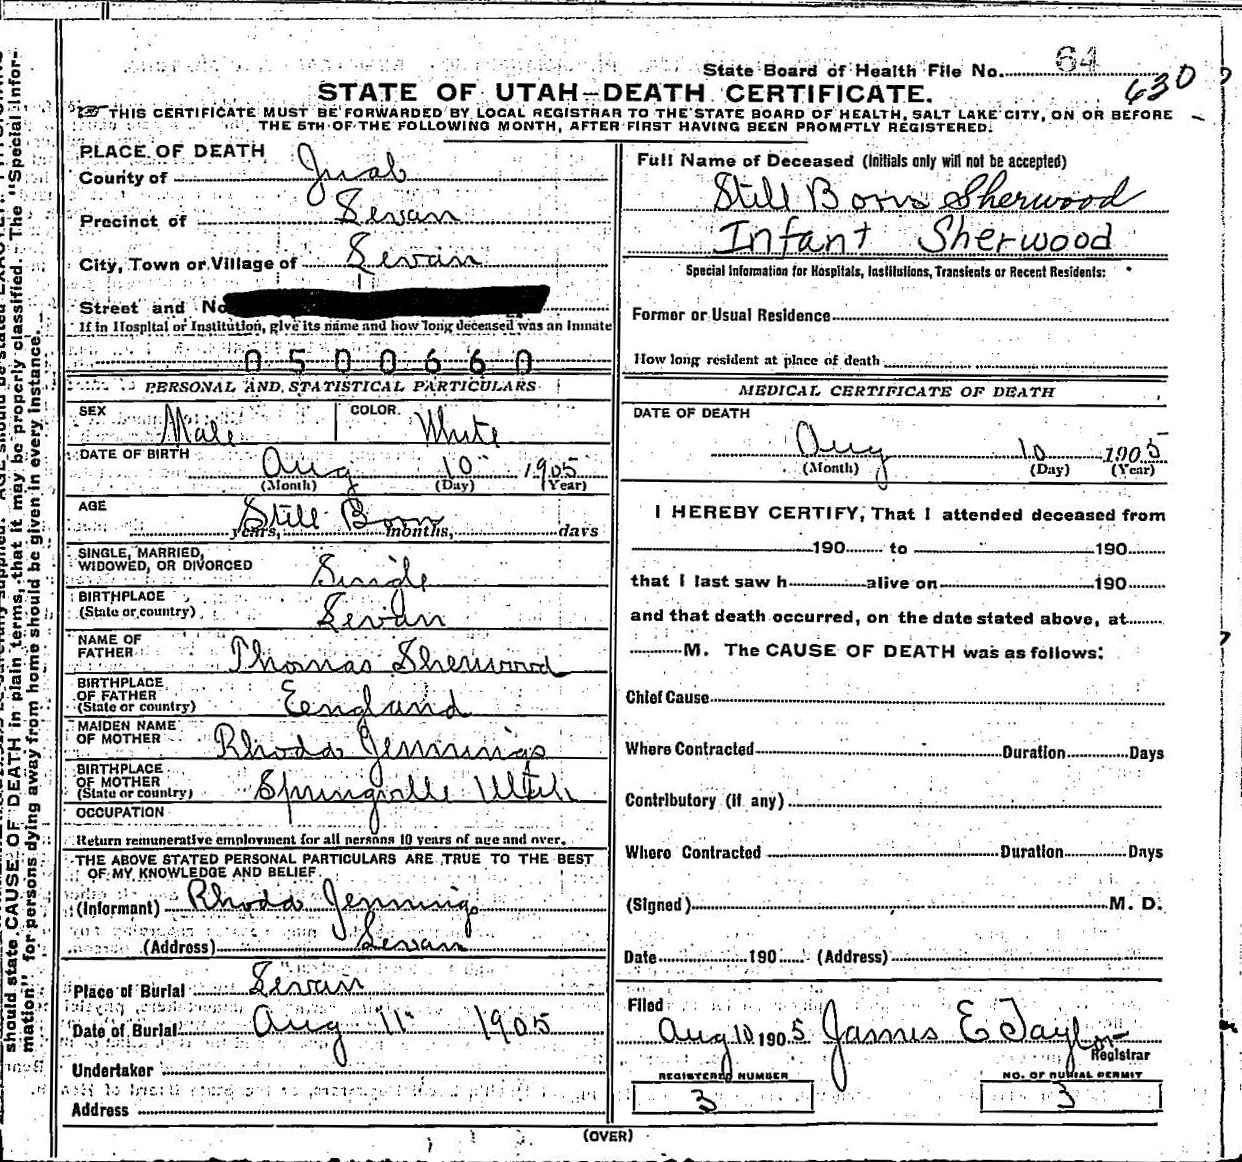 State Board of Health File No. 64
630
STATE OF UTAH—DEATH CERTIFICATE.
THIS CERTIFICATE MUST BE FORWARDED BY LOCAL REGISTRAR TO THE STATE BOARD OF HEALTH, SALT LAKE CITY, ON OR BEFORE
THE 5TH OF THE FOLLOWING MONTH, AFTER FIRST HAVING BEEN PROMPTLY REGISTERED.
PLACE OF DEATH
County of Juab
Precinct of Levan
City, Town or Village of Levan
Street and No
If in Hospital or Institution, give its name and how long deceased was an inmate
0500660
PERSONAL AND STATISTICAL PARTICULARS
SEX Male COLOR. White
DATE OF BIRTH
Aug 10" 1905
(Month) (Day) (Year)
AGE
Still Born
years, months, days
SINGLE, MARRIED,
WIDOWED, OR DIVORCED Single
BIRTHPLACE
(State or country) Levan
NAME OF
FATHER Thomas Sherwood
BIRTHPLACE
OF FATHER
(State or country) Eengland
MAIDEN NAME
OF MOTHER Rhoda Jennings
BIRTHPLACE
OF MOTHER
(State or country) Springville Utah
OCCUPATION
Return remunerative employment for all persons 10 years of age and over.
THE ABOVE STATED PERSONAL PARTICULARS ARE TRUE TO THE BEST
OF MY KNOWLEDGE AND BELIEF
(Informant) Rhoda Jennings
(Address) Levan
Place of Burial Levan
Date of Burial Aug 11" 1905
Undertaker
Address
Full Name of Deceased (Initials only will not be accepted)
Still Born Sherwood
Infant Sherwood
Special Information for Hospitals, Institutions, Transients or Recent Residents:
Former or Usual Residence
How long resident at place of death
MEDICAL CERTIFICATE OF DEATH
DATE OF DEATH
Aug 10 1905
(Month) (Day) (Year)
I HEREBY CERTIFY, That I attended deceased from
190 to 190
that I last saw h alive on 190
and that death occurred, on the date stated above, at
M. The CAUSE OF DEATH was as follows:
Chief Cause
Where Contracted Duration Days
Contributory (if any)
Where Contracted Duration Days
(Signed) M. D.
Date 190 (Address)
Filed
Aug 10 1905 James E Taylor
Registrar
REGISTERED NUMBER NO. OF BURIAL PERMIT
3 3
(OVER)
should state CAUSE OF DEATH in plain terms, that it may be properly classified. The "Special Infor-
mation" for persons dying away from home should be given in every instance.